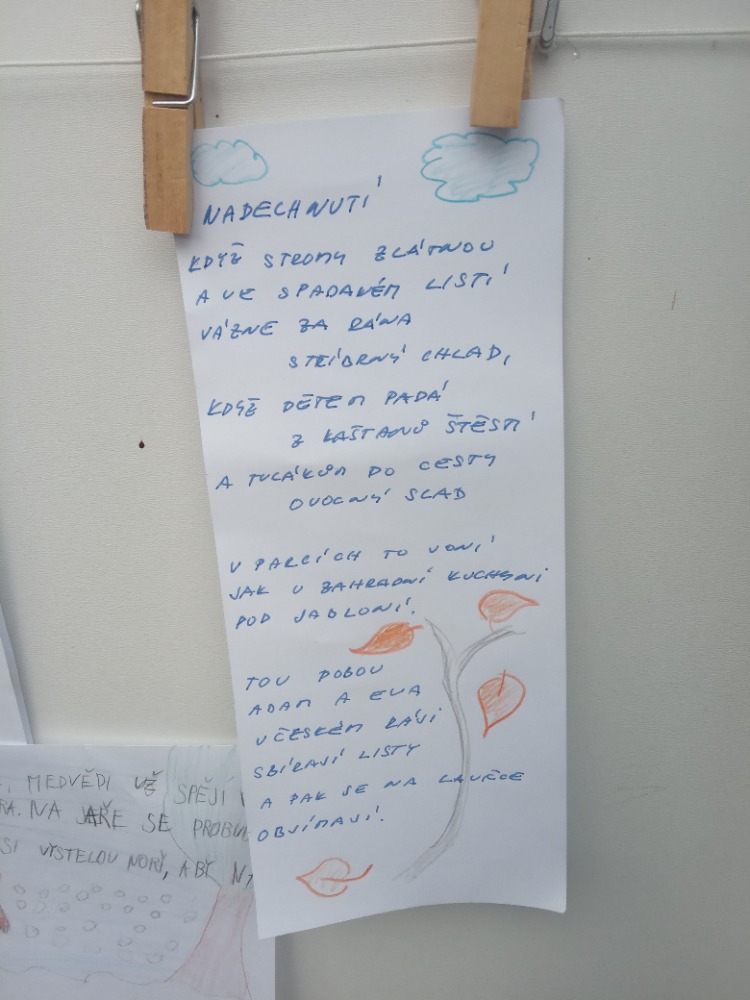 NADECHNUTÍ
KDYŽ STROMY ZLÁTNOU
A VE SPADANÉM LISTÍ
VÁZNE ZA RÁNA
STŘÍBRNÝ CHLAD,
KDYŽ DĚTEM PADÁ
Z KAŠTANŮ ŠTĚSTÍ
A TULÁKŮM DO CESTY
OVOCNÝ SLAD
V PARCÍCH TO VONÍ
JAK V ZAHRADNÍ KUCHYNI
POD JABLONÍ.
TOU DOBOU
ADAM A EVA
V ČESKÉM RÁJI
SBÍRAJÍ LISTY
A PAK SE NA LAVIČCE
OBJÍMAJÍ.
, MEDVĚDI UŽ SPĚJÍ
RA. NA JAŘE SE PROBU
SI VYSTELOU NORY, ABY